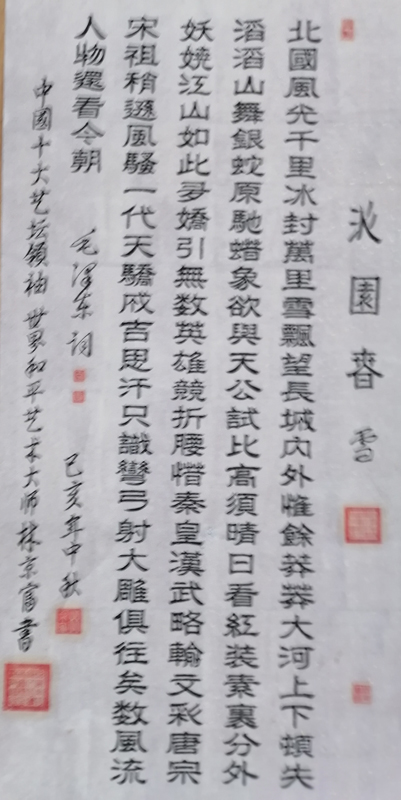 沁園春 雪
北國風光千里冰封萬里雪飄望長城内外惟餘莽莽大河上下頓失
滔滔山舞銀蛇原馳蜡象欲與天公試比高須晴日看紅装素裹分外
妖嬈江山如此多嬌引無数英雄競折腰惜秦皇漢武略輸文彩唐宗
宋祖稍遜風騷一代天驕成吉思汗只識彎弓射大雕俱往矣数風流
人物還看今朝
毛泽东词
己亥年中秋
中國十大艺坛领袖 世界和平艺术大师林京富書